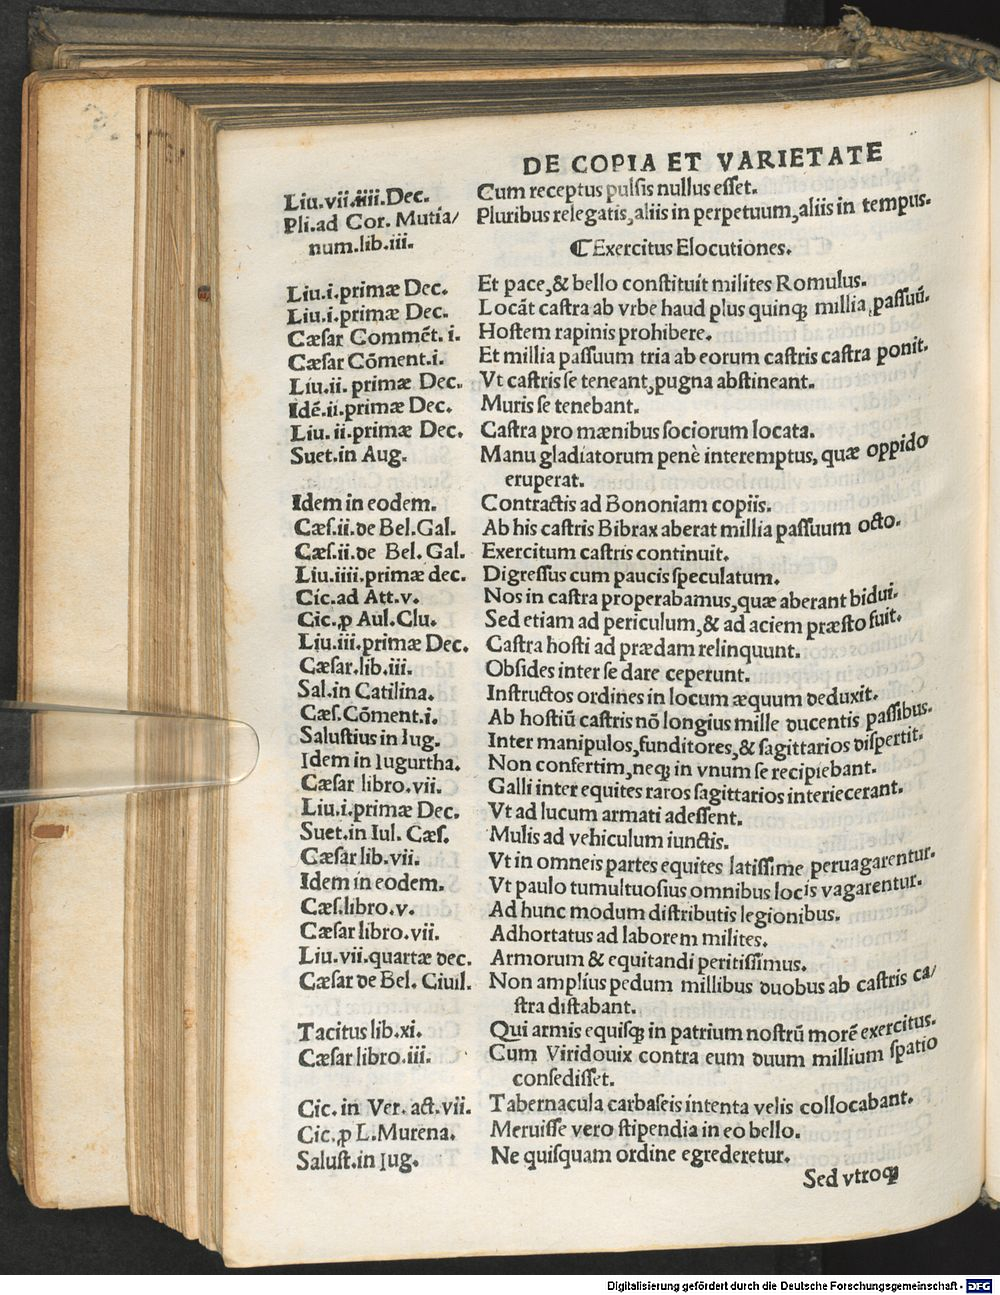 DE COPIA ET VARIETATE
Liu.vii.iiii.Dec. Cum receptus pulsis nullus esset.
Pli.ad Cor. Mutia/ Pluribus relegatis,aliis in perpetuum,aliis in tempus.
num.lib.iii.
⁋Exercitus Elocutiones.
Liu.i.primæ Dec. Et pace,& bello constituit milites Romulus.
Liu.i.primæ Dec. Locāt castra ab vrbe haud plus quinqꝫ millia,passuū.
Cæsar Commēt. i. Hostem rapinis prohibere.
Cæsar Cōment.i. Et millia passuum tria ab eorum castris castra ponit.
Liu.ii. primæ Dec. Vt castris se teneant,pugna abstineant.
Idē.ii.primæ Dec. Muris se tenebant.
Liu. ii.primæ Dec. Castra pro mænibus sociorum locata.
Suet.in Aug. Manu gladiatorum penè interemptus, quæ oppido
eruperat.
Idem in eodem. Contractis ad Bononiam copiis.
Cæs.ii.de Bel.Gal. Ab his castris Bibrax aberat millia passuum octo.
Cæs.ii.de Bel. Gal. Exercitum castris continuit.
Liu.iiii.primæ dec. Digressus cum paucis speculatum.
Cic.ad Att.v. Nos in castra properabamus,quæ aberant bidui.
Cic.ꝓ Aul.Clu. Sed etiam ad periculum,& ad aciem præsto fuit.
Liu.iii.primæ Dec. Castra hosti ad prædam relinquunt.
Cæsar.lib.iii. Obsides inter se dare ceperunt.
Sal.in Catilina. Instructos ordines in locum æquum deduxit.
Cæs.Cōment.i. Ab hostiū castris nō longius mille ducentis passibus.
Salustius in Iug. Inter manipulos,funditores,& sagittarios dispertit.
Idem in Iugurtha. Non confertim,neqꝫ in vnum se recipiebant.
Cæsar libro.vii. Galli inter equites raros sagittarios interiecerant.
Liu.i.primæ Dec. Vt ad lucum armati adessent.
Suet.in Iul. Cæs. Mulis ad vehiculum iunctis.
Cæsar lib.vii. Vt in omneis partes equites latissime peruagarentur.
Idem in eodem. Vt paulo tumultuosius omnibus locis vagarentur.
Cæs.libro.v. Ad hunc modum distributis legionibus.
Cæsar libro.vii. Adhortatus ad laborem milites.
Liu.vii.quartæ dec. Armorum & equitandi peritissimus.
Cæsar de Bel. Ciuil. Non amplius pedum millibus duobus ab castris ca/
stra distabant.
Tacitus lib.xi. Qui armis equisqꝫ in patrium nostrū morē exercitus.
Cæsar libro.iii. Cum Viridouix contra eum duum millium spatio
consedisset.
Cic. in Ver. act.vii. Tabernacula carbaseis intenta velis collocabant.
Cic.ꝓ L.Murena. Meruisse vero stipendia in eo bello.
Salust.in Iug. Ne quisquam ordine egrederetur.
Sed vtroqꝫ
Digitalisierung gefördert durch die Deutsche Forschungsgemeinschaft - DFG